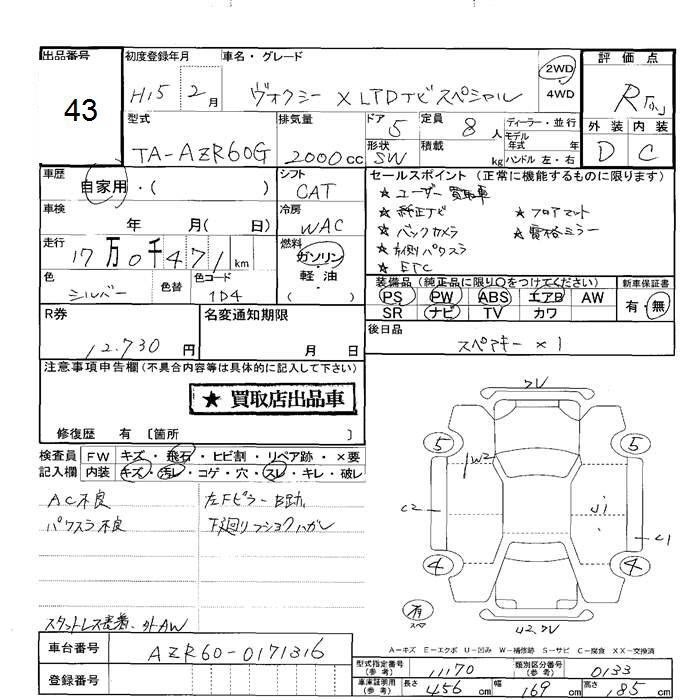 出品番号 初度登録年月 車名・グレード 評価点
43
H15 2月 ヴォクシー X LTDナビスペシャル 2WD 4WD
外装 内装
D C
型式 排気量 ドア 定員 ディーラー・並行
TA-AZR60G 2000cc 5 8人 モデル年式 年
形状 SW 積載 kg ハンドル 左・右
車歴 自家用・( ) シフト CAT セールスポイント (正常に機能するものに限ります)
★ユーザー買取車
車検 年 月( 日) 冷房 WAC ★純正ナビ ★フロアマット
★バックカメラ ★電格ミラー
走行 17万0千471km 燃料 ガソリン・軽油・( ) ★左側パワスラ
★ETC
色 シルバー 色替 色コード 1D4 装備品 (純正品に限り○をつけてください) 新車保証書
PS PW ABS エアB AW 有・無
SR ナビ TV カワ
R券 12,730円 名変通知期限 月 日 後日品
スペアキー×1
注意事項申告欄(不具合内容等は具体的に記入して下さい)
★ 買取店出品車
修復歴 有 〔箇所 〕
検査員 FW キズ・飛石・ヒビ割・リペア跡・×要
記入欄 内装 キズ・汚レ・コゲ・穴・スレ・キレ・破レ
AC不良 左Fピラーβ助
パワスラ不良 下廻りフショクハガレ
スタットレス装着、外AW
ヘV
5 5
W2
C2 U1 C1
4 4
有 スペア
U2,ヘV
A-キズ E-エクボ U-凹み W-補修跡 S-サビ C-腐食 XX-交換済
車台番号 AZR60-0171316
登録番号
型式指定番号(参考) 11170 類別区分番号(参考) 0133
車庫証明用(参考) 長さ 456cm 幅 169cm 高さ 185cm